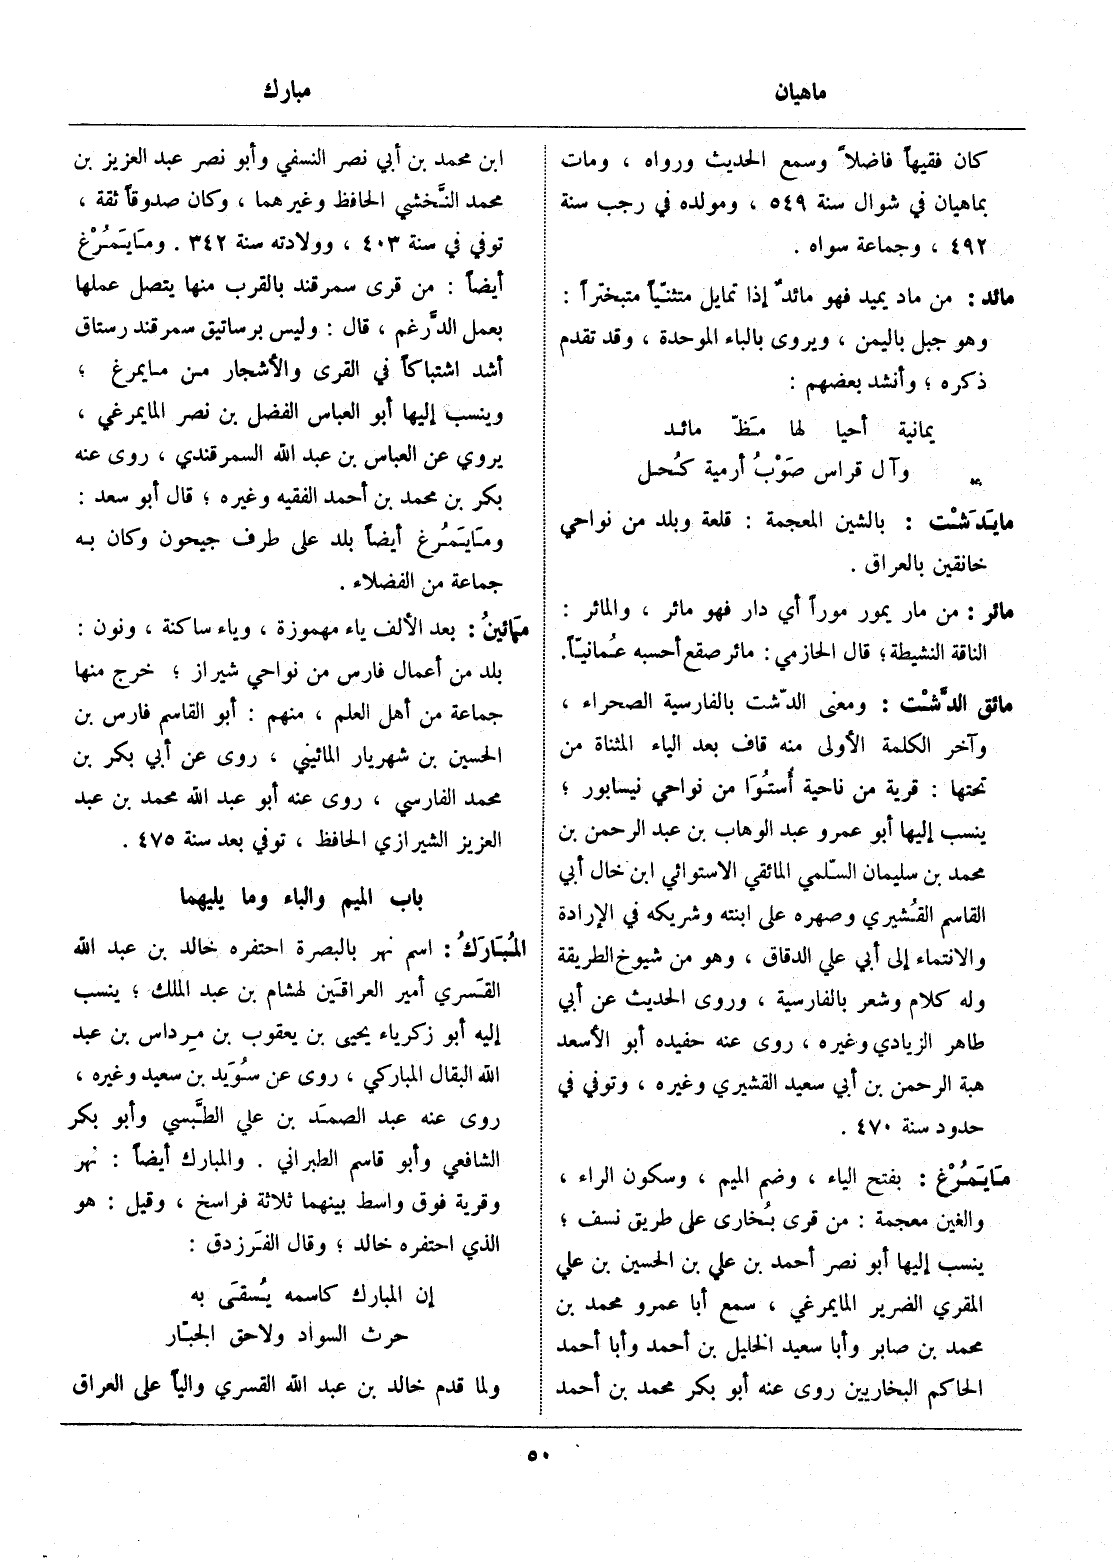 ماهيان
مبارك
كان فقيهاً فاضلاً وسمع الحديث ورواه ، ومات
بماهيان في شوال سنة ٥٤٩ ، ومولده في رجب سنة
٤٩٢ ، وجماعة سواه .
مائد : من ماد يميد فهو مائدٌ إذا تمايل متثنّياً متبختراً :
وهو جبل باليمن ، ويروى بالباء الموحدة ، وقد تقدم
ذكره ؛ وأنشد بعضهم :
يمانية أحيا لها مَظّ مائد
وآل قراس صَوْبُ أرمية كُحل
مايَدَشْت : بالشين المعجمة : قلعة وبلد من نواحي
خانقين بالعراق .
مائر : من مار يمور موراً أي دار فهو مائر ، والمائر :
الناقة النشيطة ؛ قال الحازمي : مائر صقع أحسبه عُمانيّاً.
مائق الدَّشْت : ومعنى الدّشت بالفارسية الصحراء ،
وآخر الكلمة الأولى منه قاف بعد الياء المثناة من
تحتها : قرية من ناحية أُستُوَا من نواحي نيسابور ؛
ينسب إليها أبو عمرو عبد الوهاب بن عبد الرحمن بن
محمد بن سليمان السّلمي المائقي الاستوائي ابن خال أبي
القاسم القُشيري وصهره على ابنته وشريكه في الإرادة
والانتماء إلى أبي علي الدقاق ، وهو من شيوخ الطريقة
وله كلام وشعر بالفارسية ، وروى الحديث عن أبي
طاهر الزيادي وغيره ، روى عنه حفيده أبو الأسعد
هبة الرحمن بن أبي سعيد القشيري وغيره ، وتوفي في
حدود سنة ٤٧٠ .
مَايَمُرْغ : بفتح الياء ، وضم الميم ، وسكون الراء ،
والغين معجمة : من قرى بُخارى على طريق نسف ؛
ينسب إليها أبو نصر أحمد بن علي بن الحسين بن علي
المقري الضرير المايمرغي ، سمع أبا عمرو محمد بن
محمد بن صابر وأبا سعيد الخليل بن أحمد وأبا أحمد
الحاكم البخاريين روى عنه أبو بكر محمد بن أحمد
ابن محمد بن أبي نصر النسفي وأبو نصر عبد العزيز بن
محمد النَّخشي الحافظ وغيرهما ، وكان صدوقاً ثقة ،
توفي في سنة ٤٠٣ ، وولادته سنة ٣٤٢ . ومَايَمُرْغ
أيضاً : من قرى سمرقند بالقرب منها يتصل عملها
بعمل الدَّرغم ، قال : وليس برساتيق سمرقند رستاق
أشد اشتباكاً في القرى والأشجار من مايمرغ ؛
وينسب إليها أبو العباس الفضل بن نصر المايمرغي ،
يروي عن العباس بن عبد الله السمرقندي ، روى عنه
بكر بن محمد بن أحمد الفقيه وغيره ؛ قال أبو سعد :
ومَايَمُرغ أيضاً بلد على طرف جيحون وكان به
جماعة من الفضلاء .
مَائينُ : بعد الألف ياء مهموزة ، وياء ساكنة ، ونون :
بلد من أعمال فارس من نواحي شيراز ؛ خرج منها
جماعة من أهل العلم ، منهم : أبو القاسم فارس بن
الحسين بن شهريار المائيني ، روى عن أبي بكر بن
محمد الفارسي ، روى عنه أبو عبد الله محمد بن عبد
العزيز الشيرازي الحافظ ، توفي بعد سنة ٤٧٥ .
باب الميم والباء وما يليهما
المُبَارَكُ : اسم نهر بالبصرة احتفره خالد بن عبد الله
القَسري أمير العراقَين لهشام بن عبد الملك ؛ ينسب
إليه أبو زكرياء يحيى بن يعقوب بن مِرداس بن عبد
الله البقال المباركي ، روى عن سُوَيد بن سعيد وغيره ،
روى عنه عبد الصمَد بن علي الطَّبسي وأبو بكر
الشافعي وأبو قاسم الطبراني . والمبارك أيضاً : نهر
وقرية فوق واسط بينهما ثلاثة فراسخ ، وقيل : هو
الذي احتفره خالد ؛ وقال الفَرزدق :
إن المبارك كاسمه يُسقَى به
حرث السواد ولاحق الجبّار
ولما قدم خالد بن عبد الله القسري والياً على العراق
٥٠